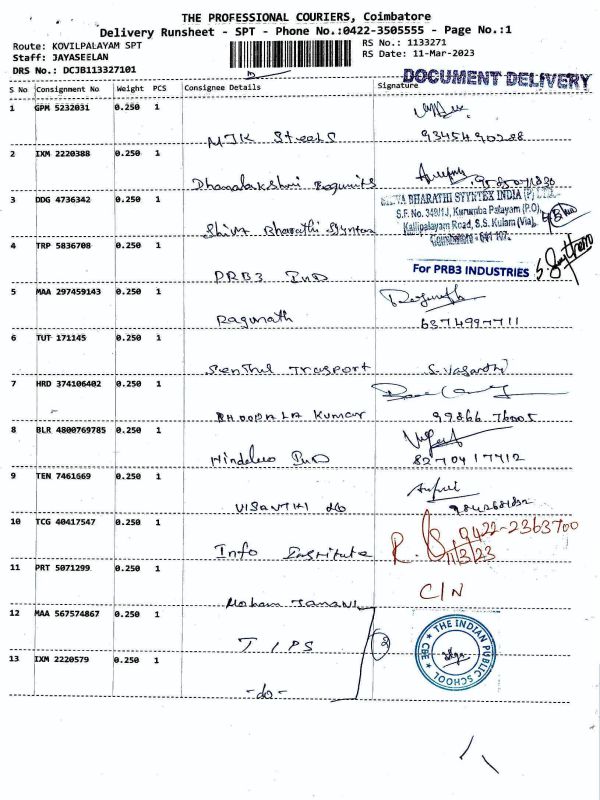 THE PROFESSIONAL COURIERS, Coimbatore
Delivery Runsheet - SPT - Phone No.:0422-3505555 - Page No.:1
Route: KOVILPALAYAM SPT
Staff: JAYASEELAN
DRS No.: DCJB113327101
RS No.: 1133271
RS Date: 11-Mar-2023
DOCUMENT DELIVERY
S No Consignment No Weight PCS Consignee Details Signature
1 GPM 5232031 0.250 1
MJK Steels 9345490288
2 IXM 2220388 0.250 1
Dhanalakshmi
3 DDG 4736342 0.250 1
SHIVA BHARATHI SYNTEX INDIA (P) LTD.
S.F. No. 349/1J, Kurumba Palayam (P.O),
Kallipalayam Road, S.S. Kulam (Via),
Coimbatore - 641 107.
Shiva Bharathi Syntex
4 TRP 5836708 0.250 1
PRB3 InD
For PRB3 INDUSTRIES
5 MAA 297459143 0.250 1
Ragunath 6374997711
6 TUT 171145 0.250 1
Senthul Trasport S. Vasanthi
7 HRD 374106402 0.250 1
BHOOPALA Kumar 99866 76005
8 BLR 4800769785 0.250 1
Hindaleo InD 8270417412
9 TEN 7461669 0.250 1
10 TCG 40417547 0.250 1
Info Institute
0422-2363700
11/3/23
11 PRT 5071299 0.250 1
C/N
Mohan
12 MAA 567574867 0.250 1
TIPS
2
THE INDIAN PUBLIC SCHOOL
CBE
13 IXM 2220579 0.250 1
-do-